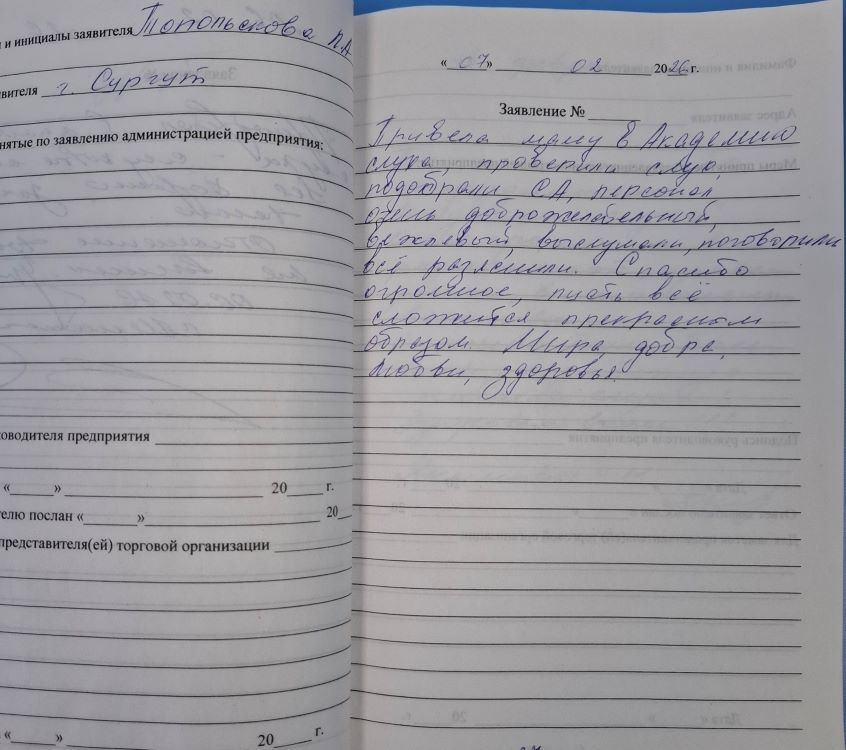 и инициалы заявителя Топольскова П.А
явителя г. Сургут
нятые по заявлению администрацией предприятия:
ководителя предприятия
« » 20 г.
телю послан « » 20
представителя(ей) торговой организации
« » 20 г.
« 07 » 02 2026 г.
Заявление №
Привела маму в Академию
слуха, проверили слух,
подобрали СА, персонал
очень доброжелательный,
вежливый, выслушали, поговорили
всё разяснили. Спасибо
огромное, пусть всё
сложится прекрасным
образом. Мира, добра,
любви, здоровья.